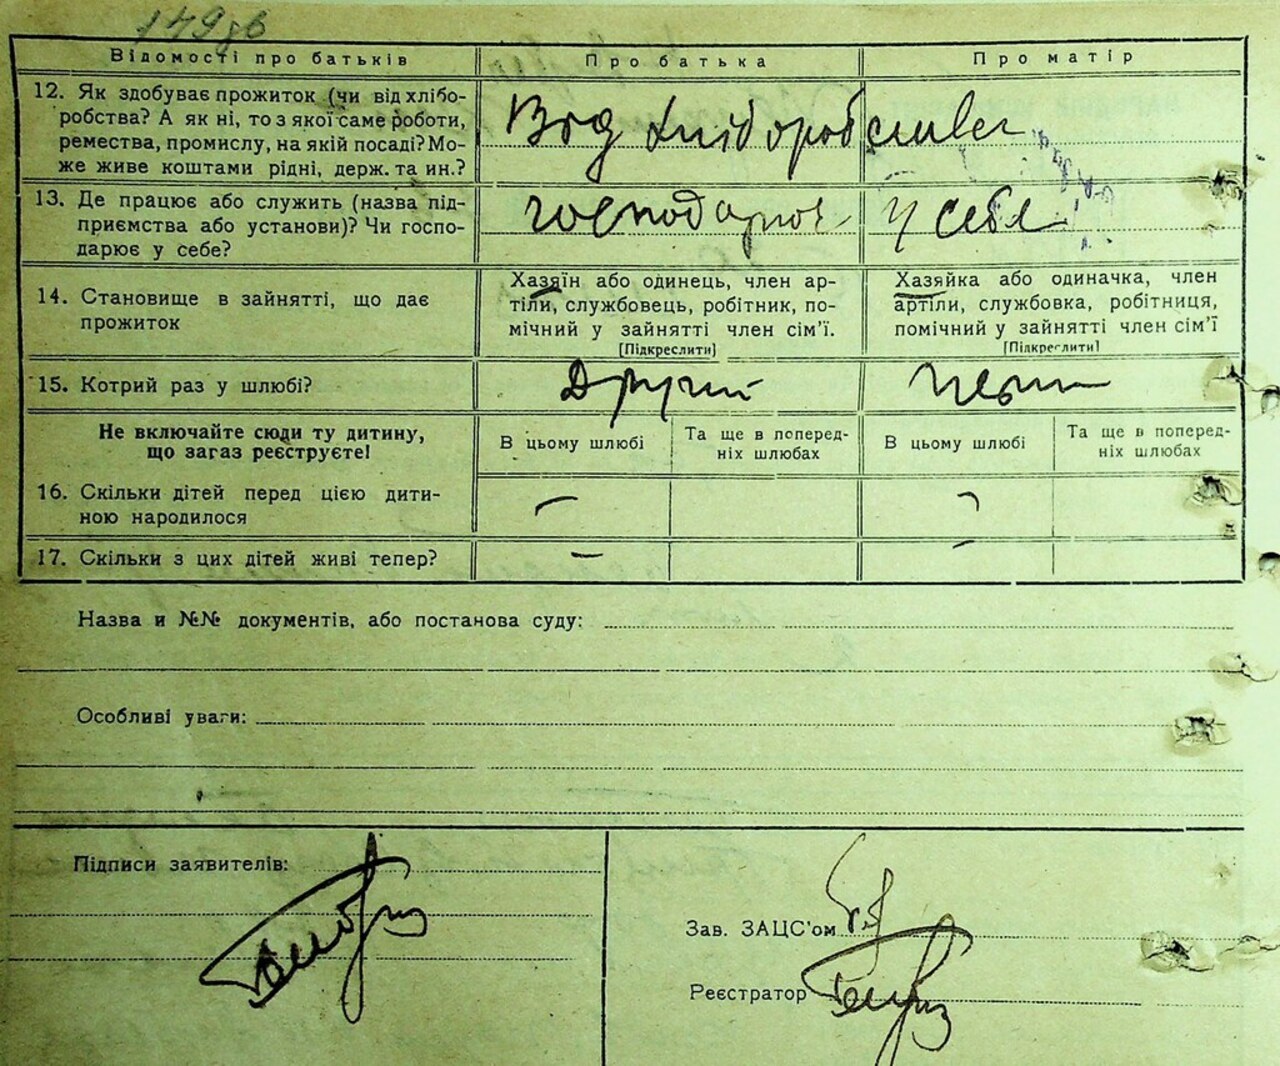 149зв
Відомості про батьків Про батька Про матір
12. Як здобуває прожиток (чи від хлібо-
робства? А як ні, то з якої саме роботи,
ремества, промислу, на якій посаді? Мо-
же живе коштами рідні, держ. та ин.?
Від хліборобства
13. Де працює або служить (назва під-
приємства або установи)? Чи госпо-
дарює у себе?
господарює у себе
14. Становище в зайнятті, що дає
прожиток
Хазяїн або одинець, член ар-
тіли, службовець, робітник, по-
мічний у зайнятті член сім'ї.
[Підкреслити]
Хазяйка або одиначка, член
артіли, службовка, робітниця,
помічний у зайнятті член сім'ї
[Підкреслити]
15. Котрий раз у шлюбі? Другий
Не включайте сюди ту дитину,
що загаз реєструєте!
В цьому шлюбі
Та ще в поперед-
ніх шлюбах
В цьому шлюбі
Та ще в поперед-
ніх шлюбах
16. Скільки дітей перед цією дити-
ною народилося
— —
17. Скільки з цих дітей живі тепер? — —
Назва и №№ документів, або постанова суду:
Особливі уваги:
Підписи заявителів:
Зав. ЗАЦС'ом
Реєстратор